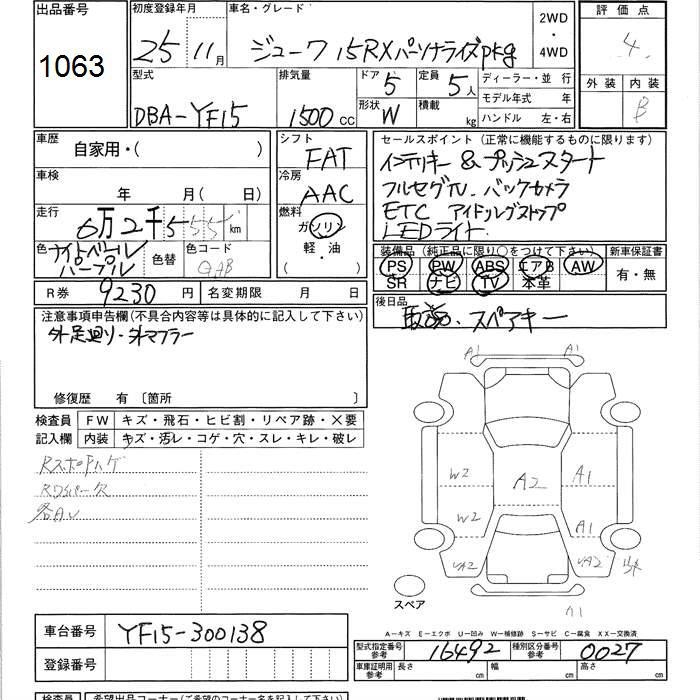 出品番号 1063
初度登録年月 25 11月
車名・グレード ジューク 15RXパーソナライズpkg
2WD・4WD
評価点 4
外装 内装 B
型式 DBA-YF15
排気量 1500 CC
ドア 5
形状 W
定員 5人
積載 kg
ディーラー・並行
モデル年式 年
ハンドル 左・右
車歴 自家用・( )
車検 年 月( 日)
走行 6万2千555km
色 ナイトベールパープル
色替
色コード GAB
シフト FAT
冷房 AAC
燃料 ガソリン
軽・油
セールスポイント(正常に機能するものに限ります)
インテリキー & プッシュスタート
フルセグTV.バックカメラ
ETC アイドリングストップ
LEDライト
装備品(純正品に限り○をつけて下さい)
PS PW ABS エアB AW
SR ナビ TV 本革
新車保証書
有・無
R券 9230円
名変期限 月 日
後日品
取説・スペアキー
注意事項申告欄(不具合内容等は具体的に記入して下さい)
外足廻り・外マフラー
修復歴 有 〔箇所 〕
検査員記入欄
FW キズ・飛石・ヒビ割・リペア跡・X要
内装 キズ・汚レ・コゲ・穴・スレ・キレ・破レ
各AU
A1 A1
W2 A2 A1
W2 A1
UA2 UA2
A1
スペア
A-キズ E-エクボ U-凹み W-補修跡 S-サビ C-腐食 XX-交換済
車台番号 YF15-300138
登録番号
型式指定番号参考 16492
種別区分番号参考 0027
車庫証明用参考 長さ cm 幅 cm 高さ cm
検査員
希望出品コーナー(ご希望のコーナー名を記入下さい)